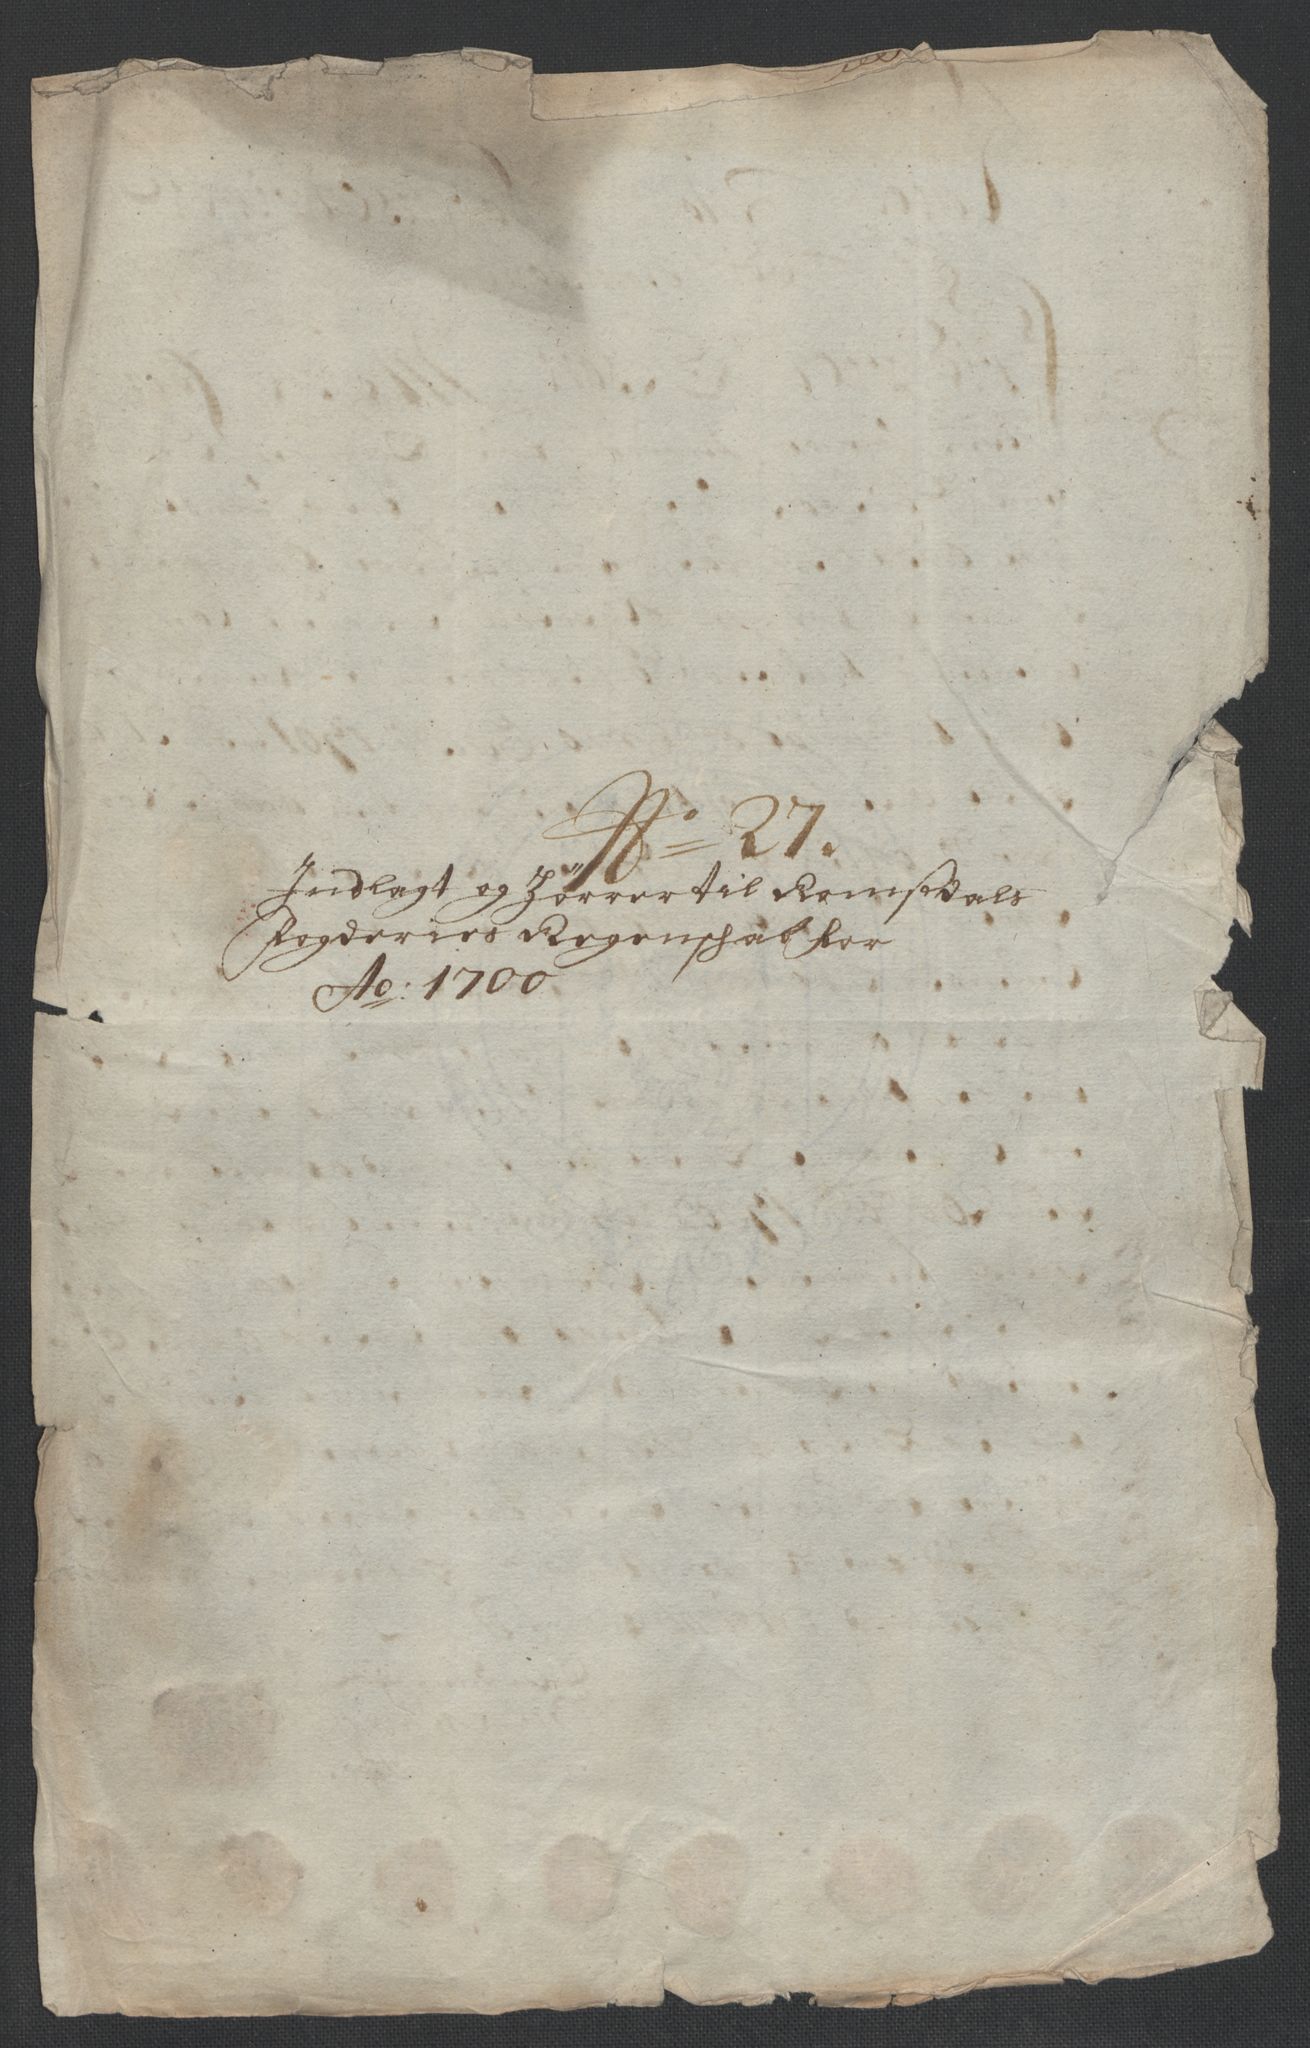 No 27.
Indlagt og Hörrer til Romsdals
Fogderies Regenschab for
Ao: 1700